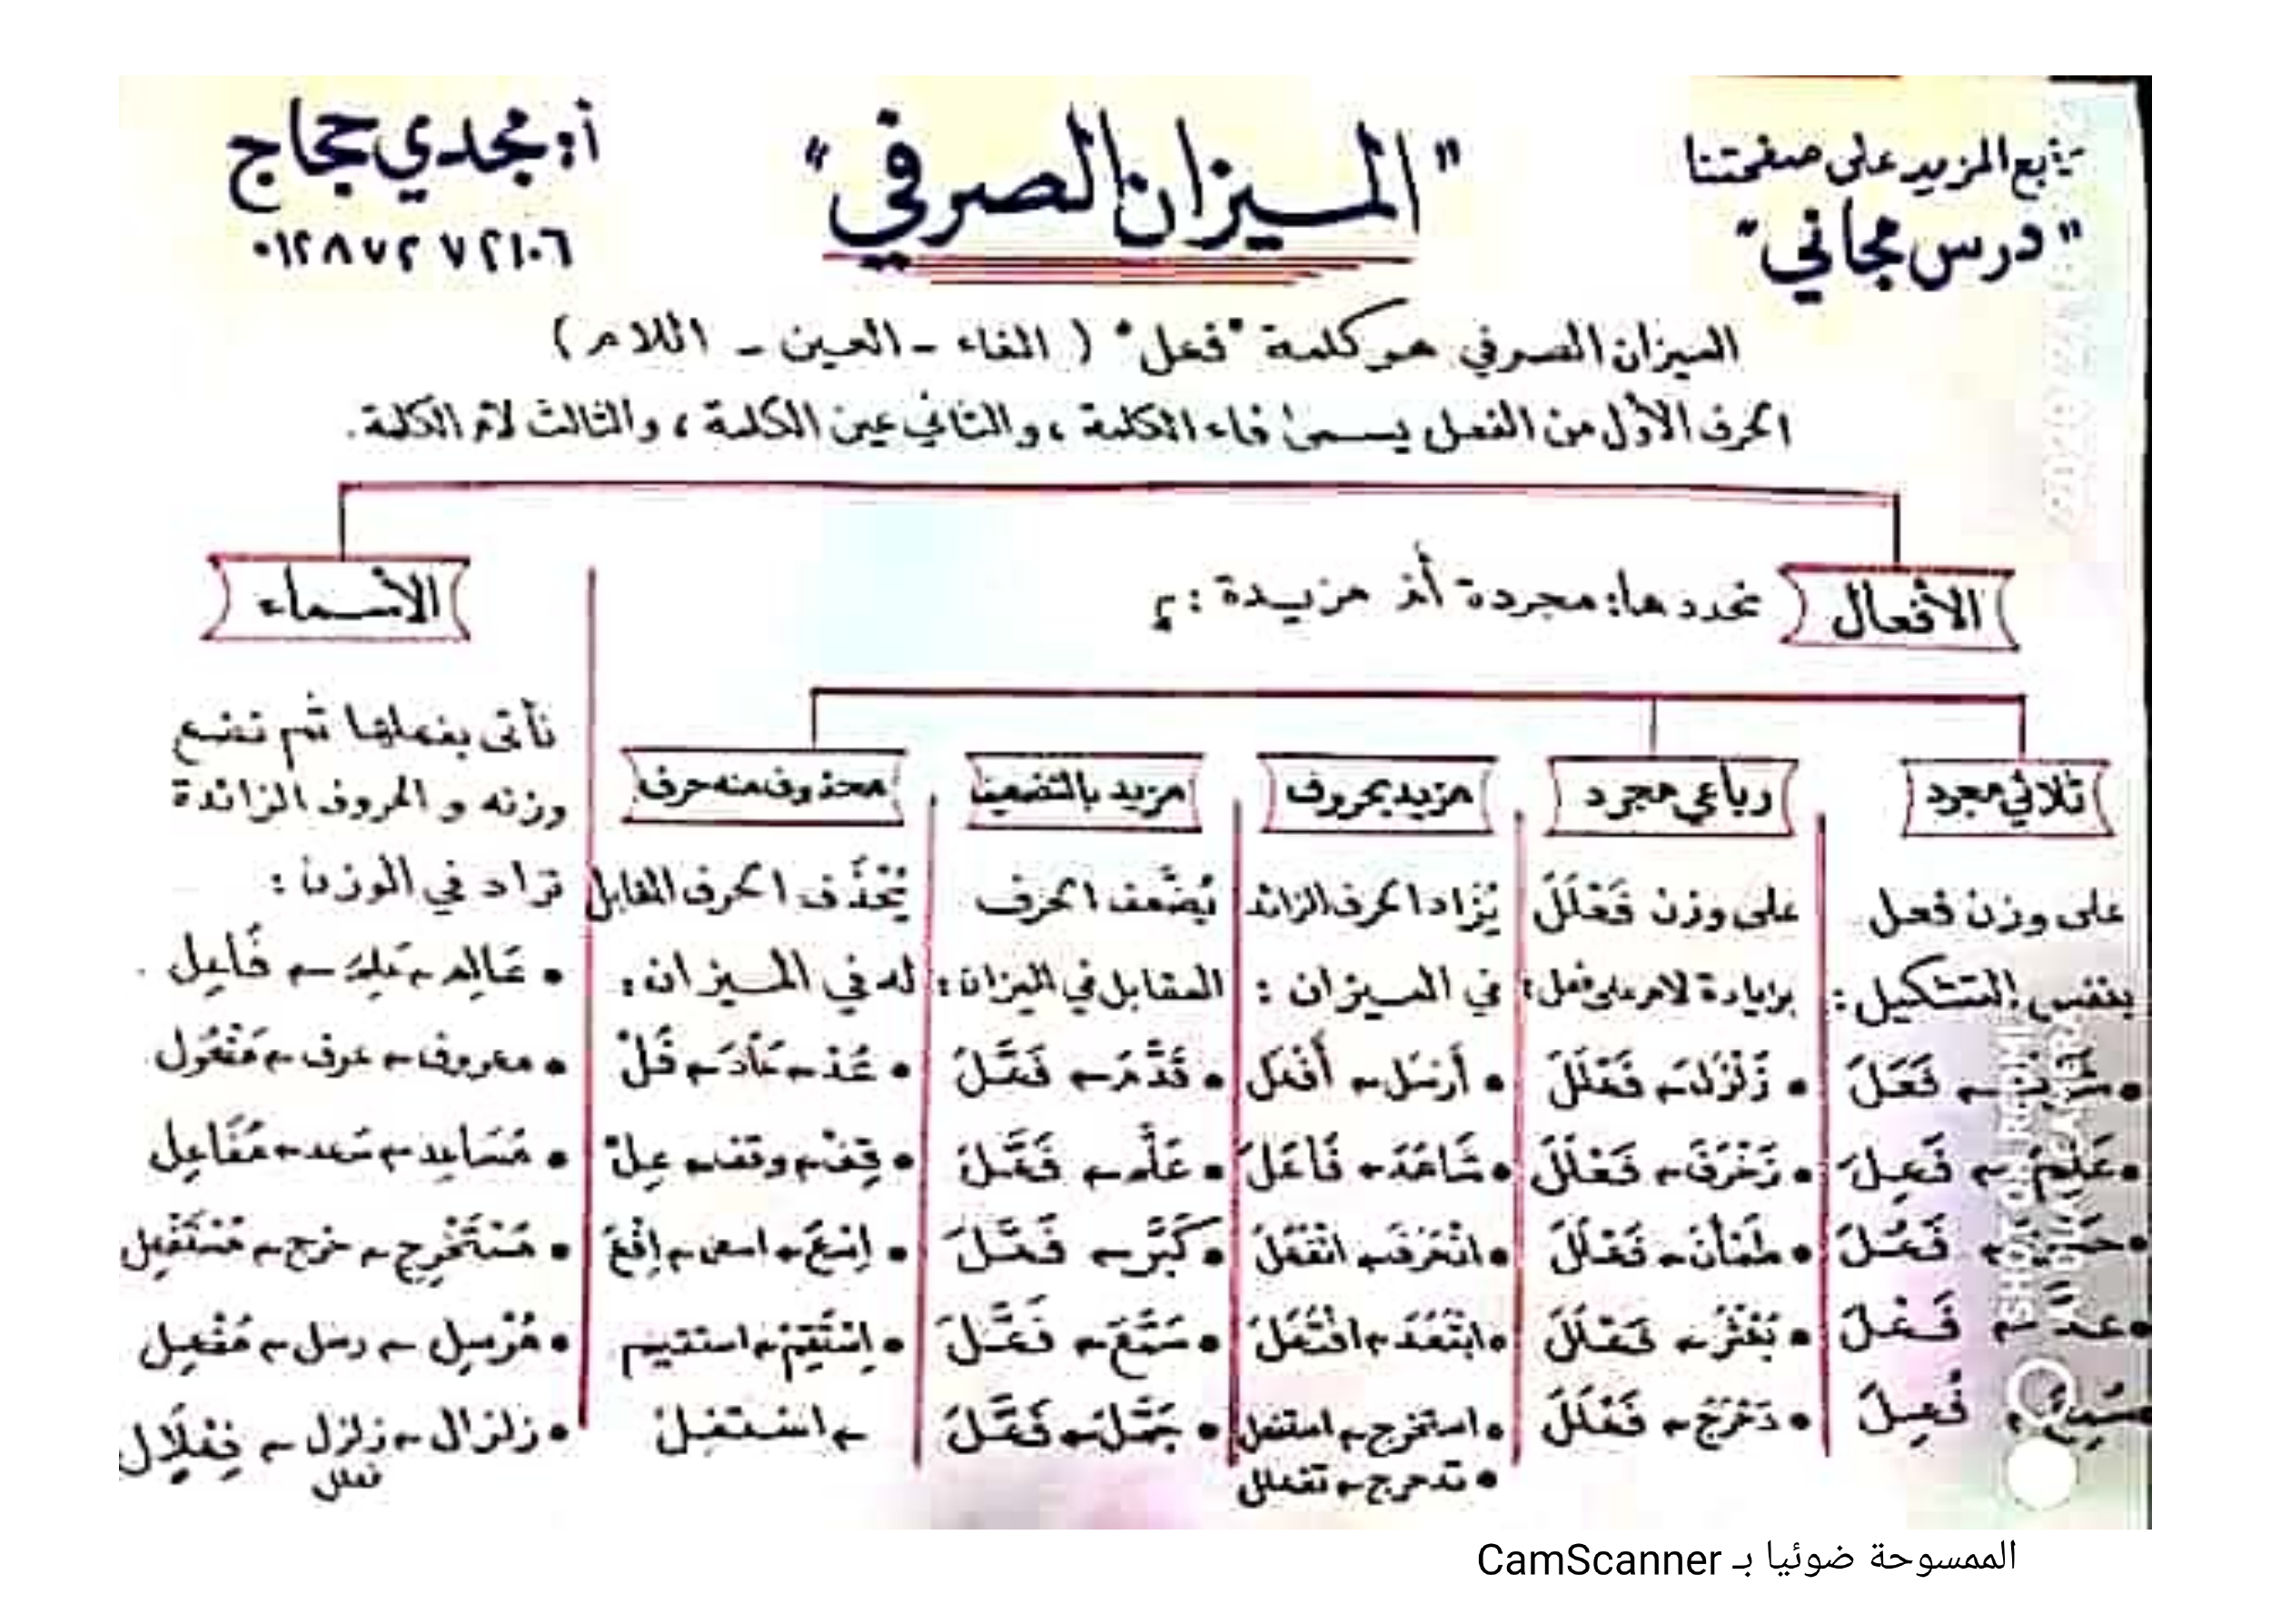 تابع المزيد على صفحتنا
"درس مجاني"
"الميزان الصرفي"
أ: مجدي حجاج
٠١٢٨٧٢٧٢١٠٦
الميزان الصرفي هو كلمة "فعل" ( الفاء - العين - اللام )
الحرف الأول من الفعل يسمى فاء الكلمة ، والثاني عين الكلمة ، والثالث لام الكلمة .
الأفعال
نحددها: مجردة أم مزيدة :
ثلاثي مجرد
على وزن فعل
بنفس التشكيل :
فَعَلَ
• عَلِمَ ← فَعِلَ
فَعُلَ
فَعْلَ
فُعِلَ
رباعي مجرد
على وزن فَعْلَلَ
بزيادة لام على فعل :
• زَلْزَلَ ← فَعْلَلَ
• زَخْرَفَ ← فَعْلَلَ
• طَمْأَنَ ← فَعْلَلَ
• بَعْثَرَ ← فَعْلَلَ
• دَحْرَجَ ← فَعْلَلَ
مزيد بحروف
يُزَاد الحرف الزائد
في الميزان :
• أَرْسَلَ ← أَفْعَلَ
• شَاهَدَ ← فَاعَلَ
• انْحَرَفَ ← انْفَعَلَ
• ابْتَعَدَ ← افْتَعَلَ
• استخرج ← استفعل
• تدحرج ← تفعلل
مزيد بالتضعيف
يُضَّعف الحرف
المقابل في الميزان :
• قَدَّمَ ← فَعَّلَ
• عَلَّم ← فَعَّلَ
• كَبَّرَ ← فَعَّلَ
• فَعَّلَ
• جَمَّلَ ← فَعَّلَ
محذوف منه حرف
يُحْذَف الحرف المقابل
له في الميزان :
• عُدْ ← عَادَ ← فُلْ
• قِفْ ← وقف ← عِلْ
• اِسْعَ ← اسعى ← اِفْعَ
• اِسْتَقِمْ ← استقيم
← اسْتَفِلْ
الأسماء
نأتى بفعلها ثم نضع
وزنه و الحروف الزائدة
تزاد في الوزن :
• عَالِم ← عَلِمَ ← فَاعِل
• معروف ← عرف ← مَفْعُول
• مُسَاعِد ← سَعد ← مُفَاعِل
• مُسْتَخْرِج ← خرج ← مُسْتَفْعِل
• مُرْسِل ← رسل ← مُفْعِل
• زلزال ← زلزل ← فِعْلَال
فعلل
الممسوحة ضوئيا بـ CamScanner